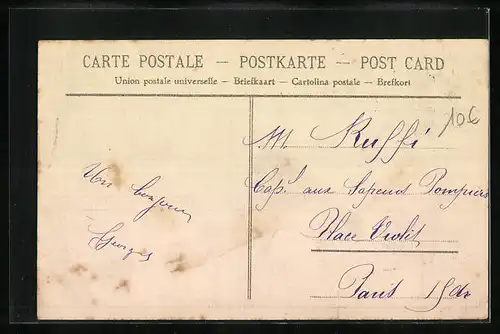 CARTE POSTALE — POSTKARTE — POST CARD
Union postale universelle — Briefkaart — Cartolina postale — Brefkort
106
M. Ruffi
Cap.l aux Sapeurs Pompiers
Place Violet
Paris 15e
Un bonjour
Georges